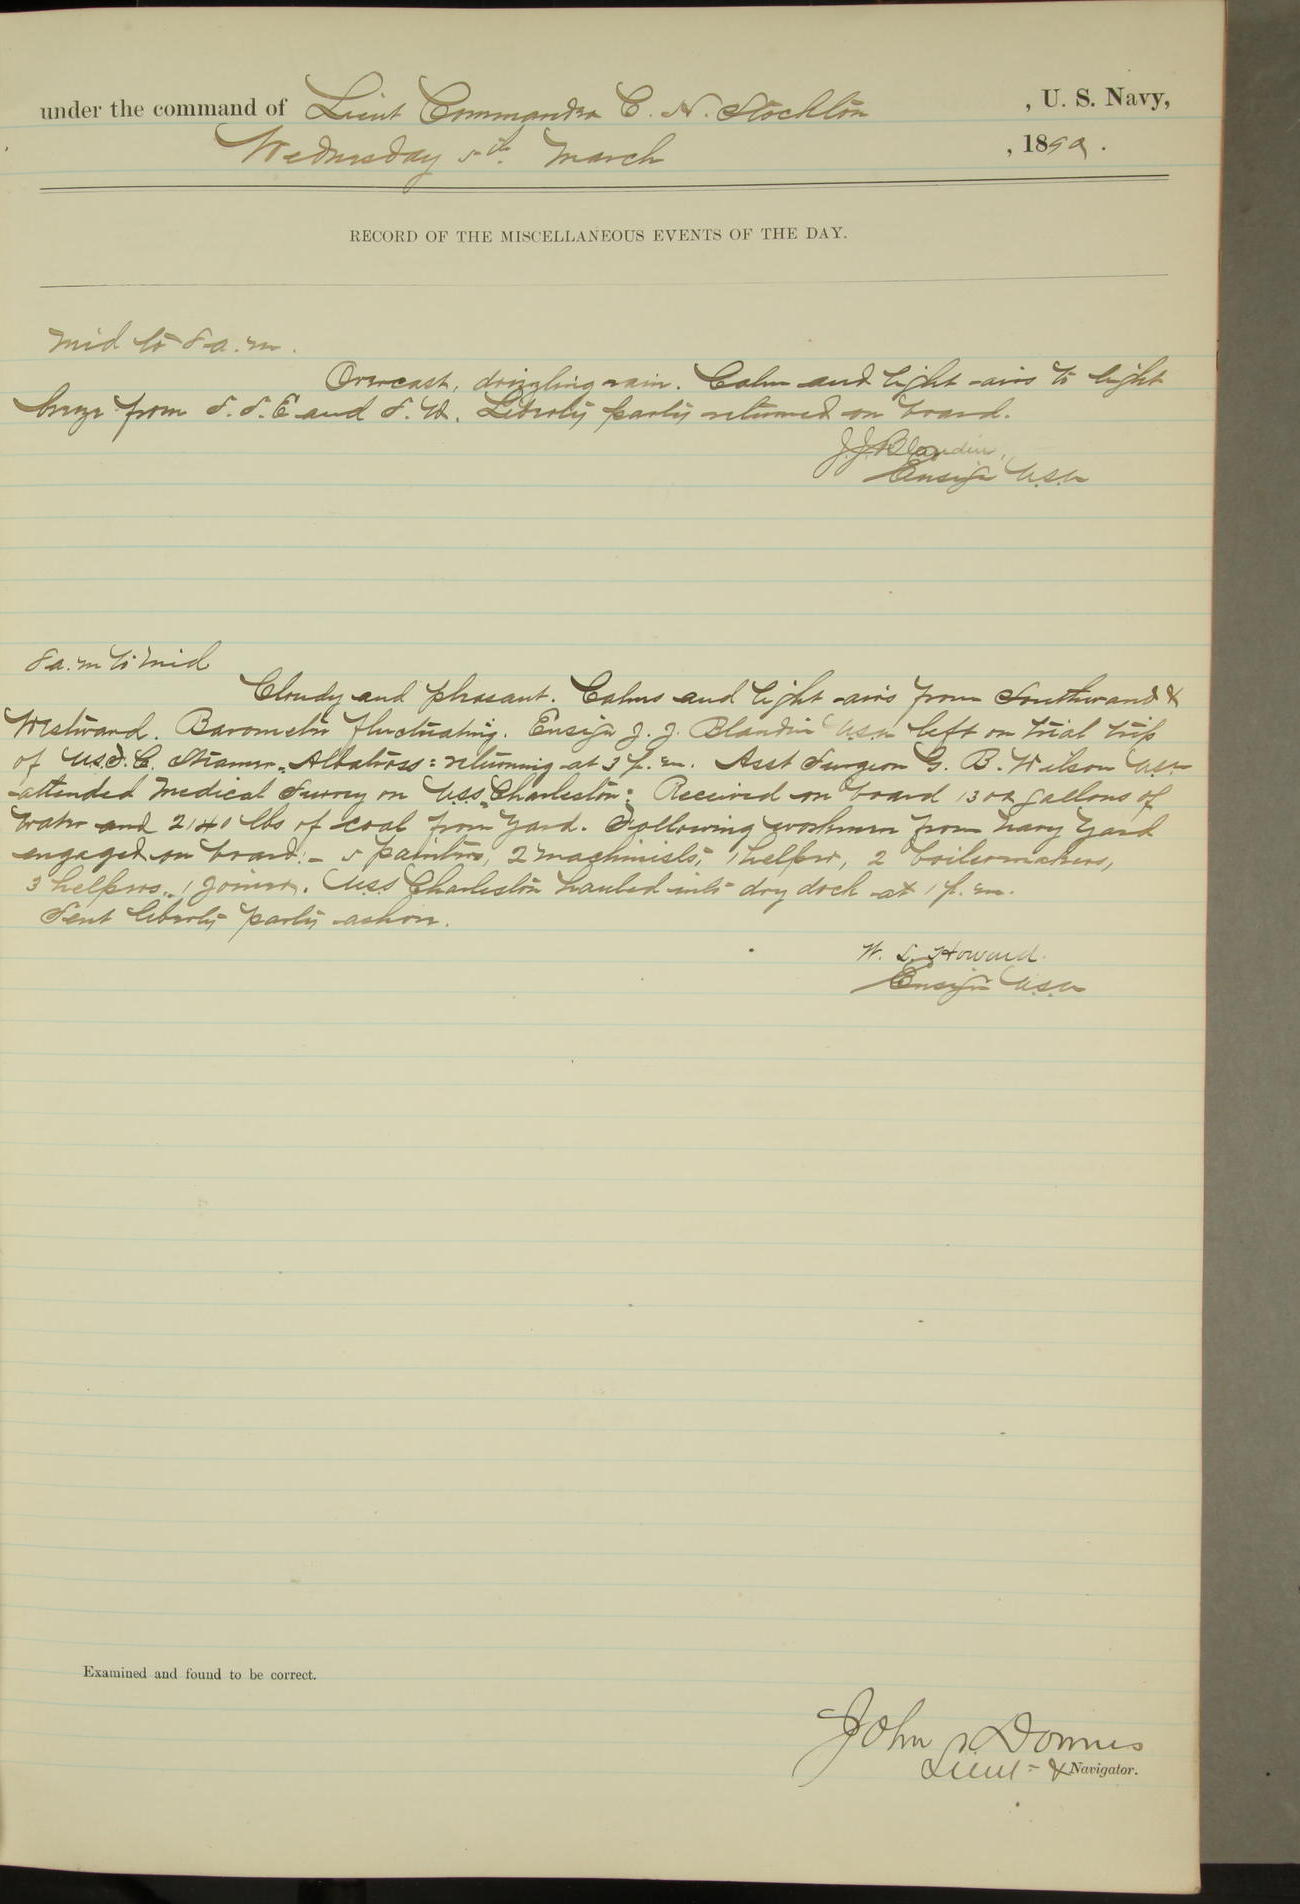 under the command of Lieut Commander C. H. Stockton, U. S. Navy,
Wednesday 5th March, 1890.
RECORD OF THE MISCELLANEOUS EVENTS OF THE DAY.
Mid to 8 a.m.
Overcast, drizzling rain. Calm and light airs to light
breeze from S.S.E and S.W. Liberty party returned on board.
J.J. Blandin,
Ensign U.S.N
8 a.m to Mid
Cloudy and pleasant. Calms and light airs from Southward &
Westward. Barometer fluctuating. Ensign J. J. Blandin U.S.N left on trial trip
of U.S.F.C. Steamer "Albatross" returning at 3 p.m. Asst Surgeon G. B. Wilson U.S.N
attended Medical Survey on U.S.S. "Charleston". Received on board 1302 gallons of
water and 2140 lbs of coal from Yard. Following workmen from Navy Yard
engaged on board:- 5 painters, 2 machinists, 1 helper, 2 boilermakers,
3 helpers, 1 joiner. U.S.S Charleston hauled into dry dock at 1 p.m.
Sent liberty party ashore.
W. L. Howard.
Ensign U.S.N
Examined and found to be correct.
John Downes
Lieut - & Navigator.